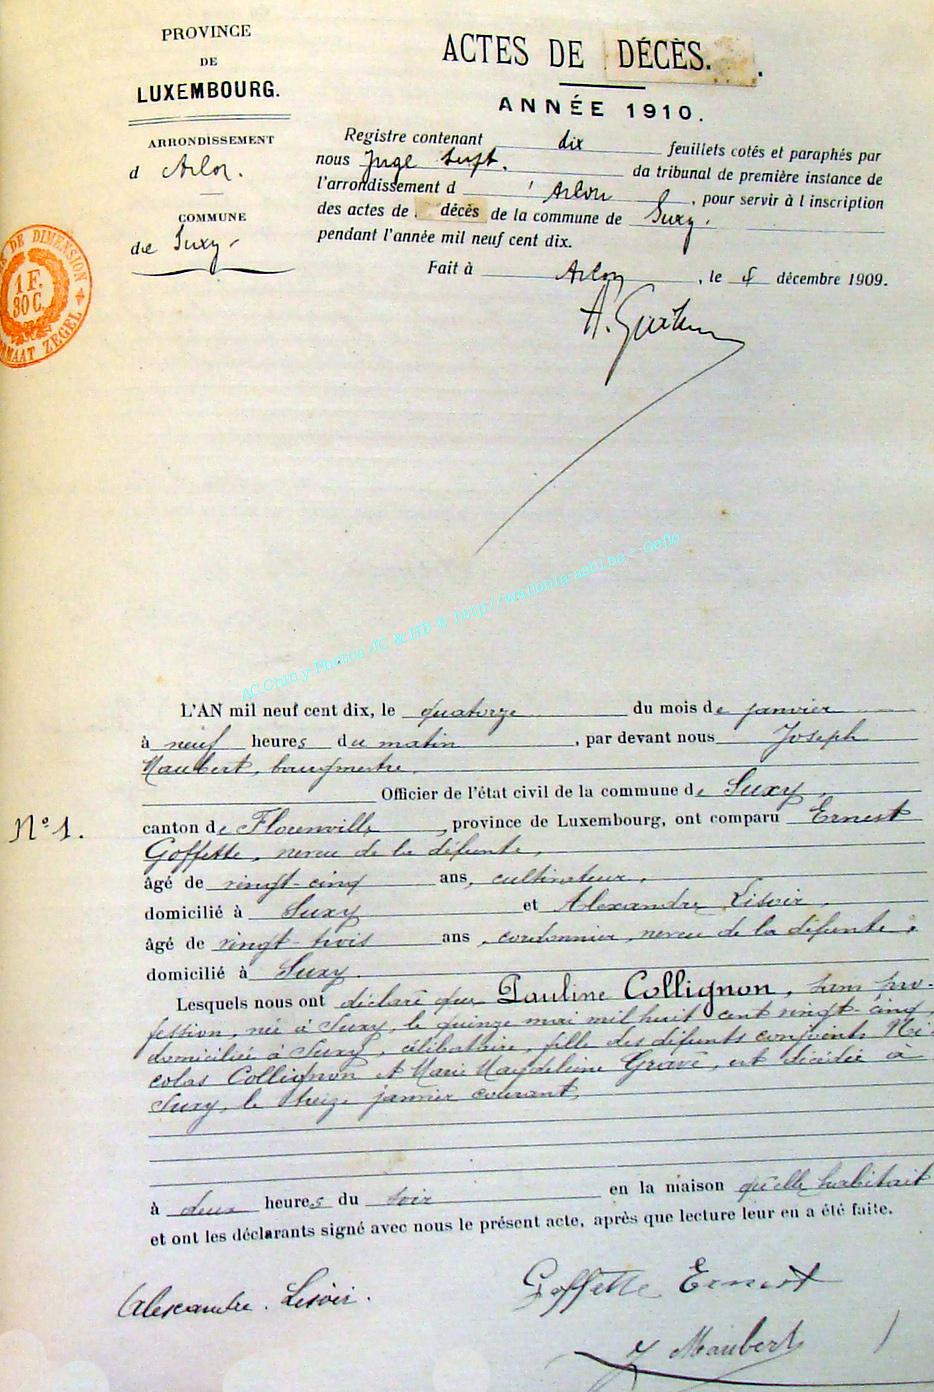 PROVINCE
DE
LUXEMBOURG.
ARRONDISSEMENT
d Arlon.
COMMUNE
de Suxy.
ACTES DE DÉCÈS.
ANNÉE 1910.
Registre contenant dix feuillets cotés et paraphés par
nous Juge Supt. du tribunal de première instance de
l'arrondissement d'Arlon, pour servir à l'inscription
des actes de décès de la commune de Suxy.
pendant l'année mil neuf cent dix.
Fait à Arlon, le décembre 1909.
DE DIMENSION
1 F.
30 C.
ZEGEL
AC Chiny-Photos JC & HB © http://
L'AN mil neuf cent dix, le quatorze du mois de janvier
à neuf heures du matin, par devant nous Joseph
Maubert, bourgmestre,
Officier de l'état civil de la commune de Suxy,
N° 1.
canton de Florenville, province de Luxembourg, ont comparu Ernest
Goffette, neveu de la défunte,
âgé de vingt-cinq ans, cultivateur,
domicilié à Suxy et Alexandre Lisoir,
âgé de vingt-trois ans, cordonnier, neveu de la défunte,
domicilié à Suxy.
Lesquels nous ont déclaré que Pauline Collignon, sans pro-
fession, née à Suxy, le quinze mai mil huit cent vingt-cinq,
domiciliée à Suxy, célibataire, fille des défunts conjoints Ni
colas Collignon et Marie Magdeleine Gravé, est décédée à
Suxy, le treize janvier courant,
à deux heures du soir en la maison qu'elle habitait
et ont les déclarants signé avec nous le présent acte, après que lecture leur en a été faite.
Alexandre. Lisoir.
Goffette Ernest
J Maubert